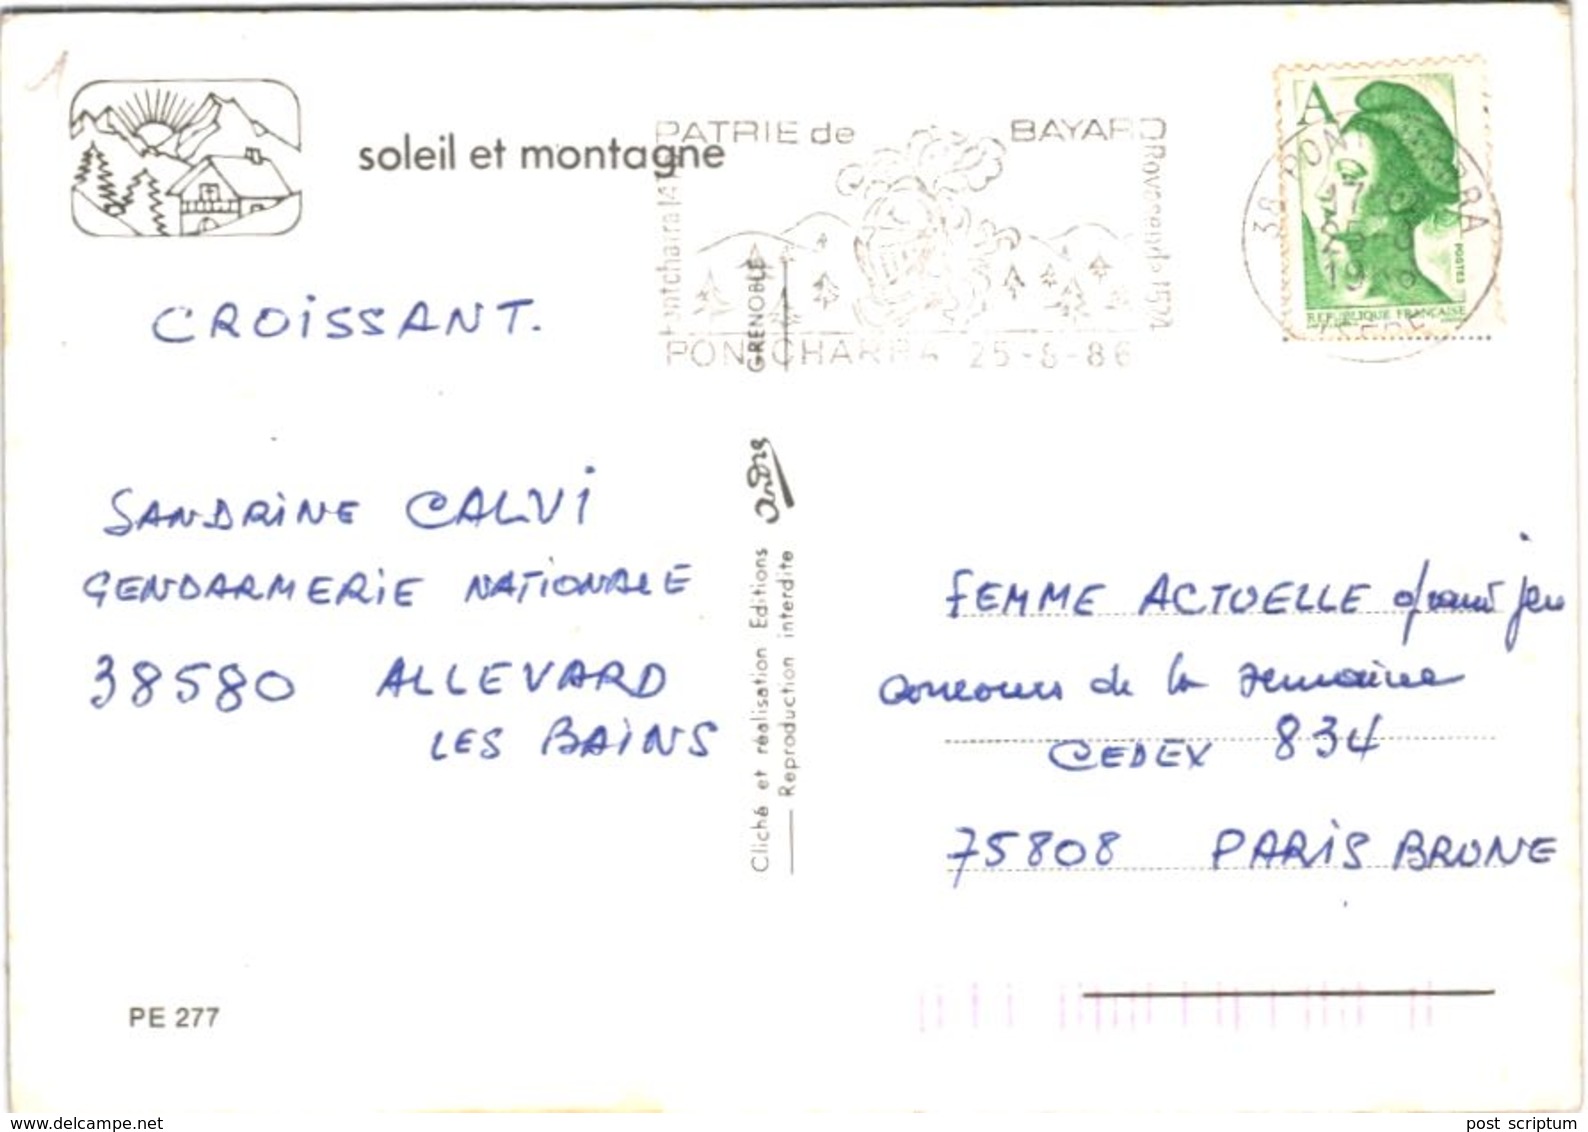 soleil et montagne
PATRIE de BAYARD
Pontcharra 14
Rovasenda 1524
PONTCHARRA 25-8-86
38 PONTCHARRA
ISERE
A
POSTES
REPUBLIQUE FRANÇAISE
CROiSSANT.
SANDRiNE CALVi
GENDARMERiE NATiONALE
38580 ALLEVARD
LES BAiNS
GRENOBLE
André
Cliché et réalisation Editions
Reproduction interdite
FEMME ACTUELLE grand jeu
concours de la semaine
CEDEX 834
75808 PARiS BRUNE
PE 277
www.delcampe.net
post scriptum